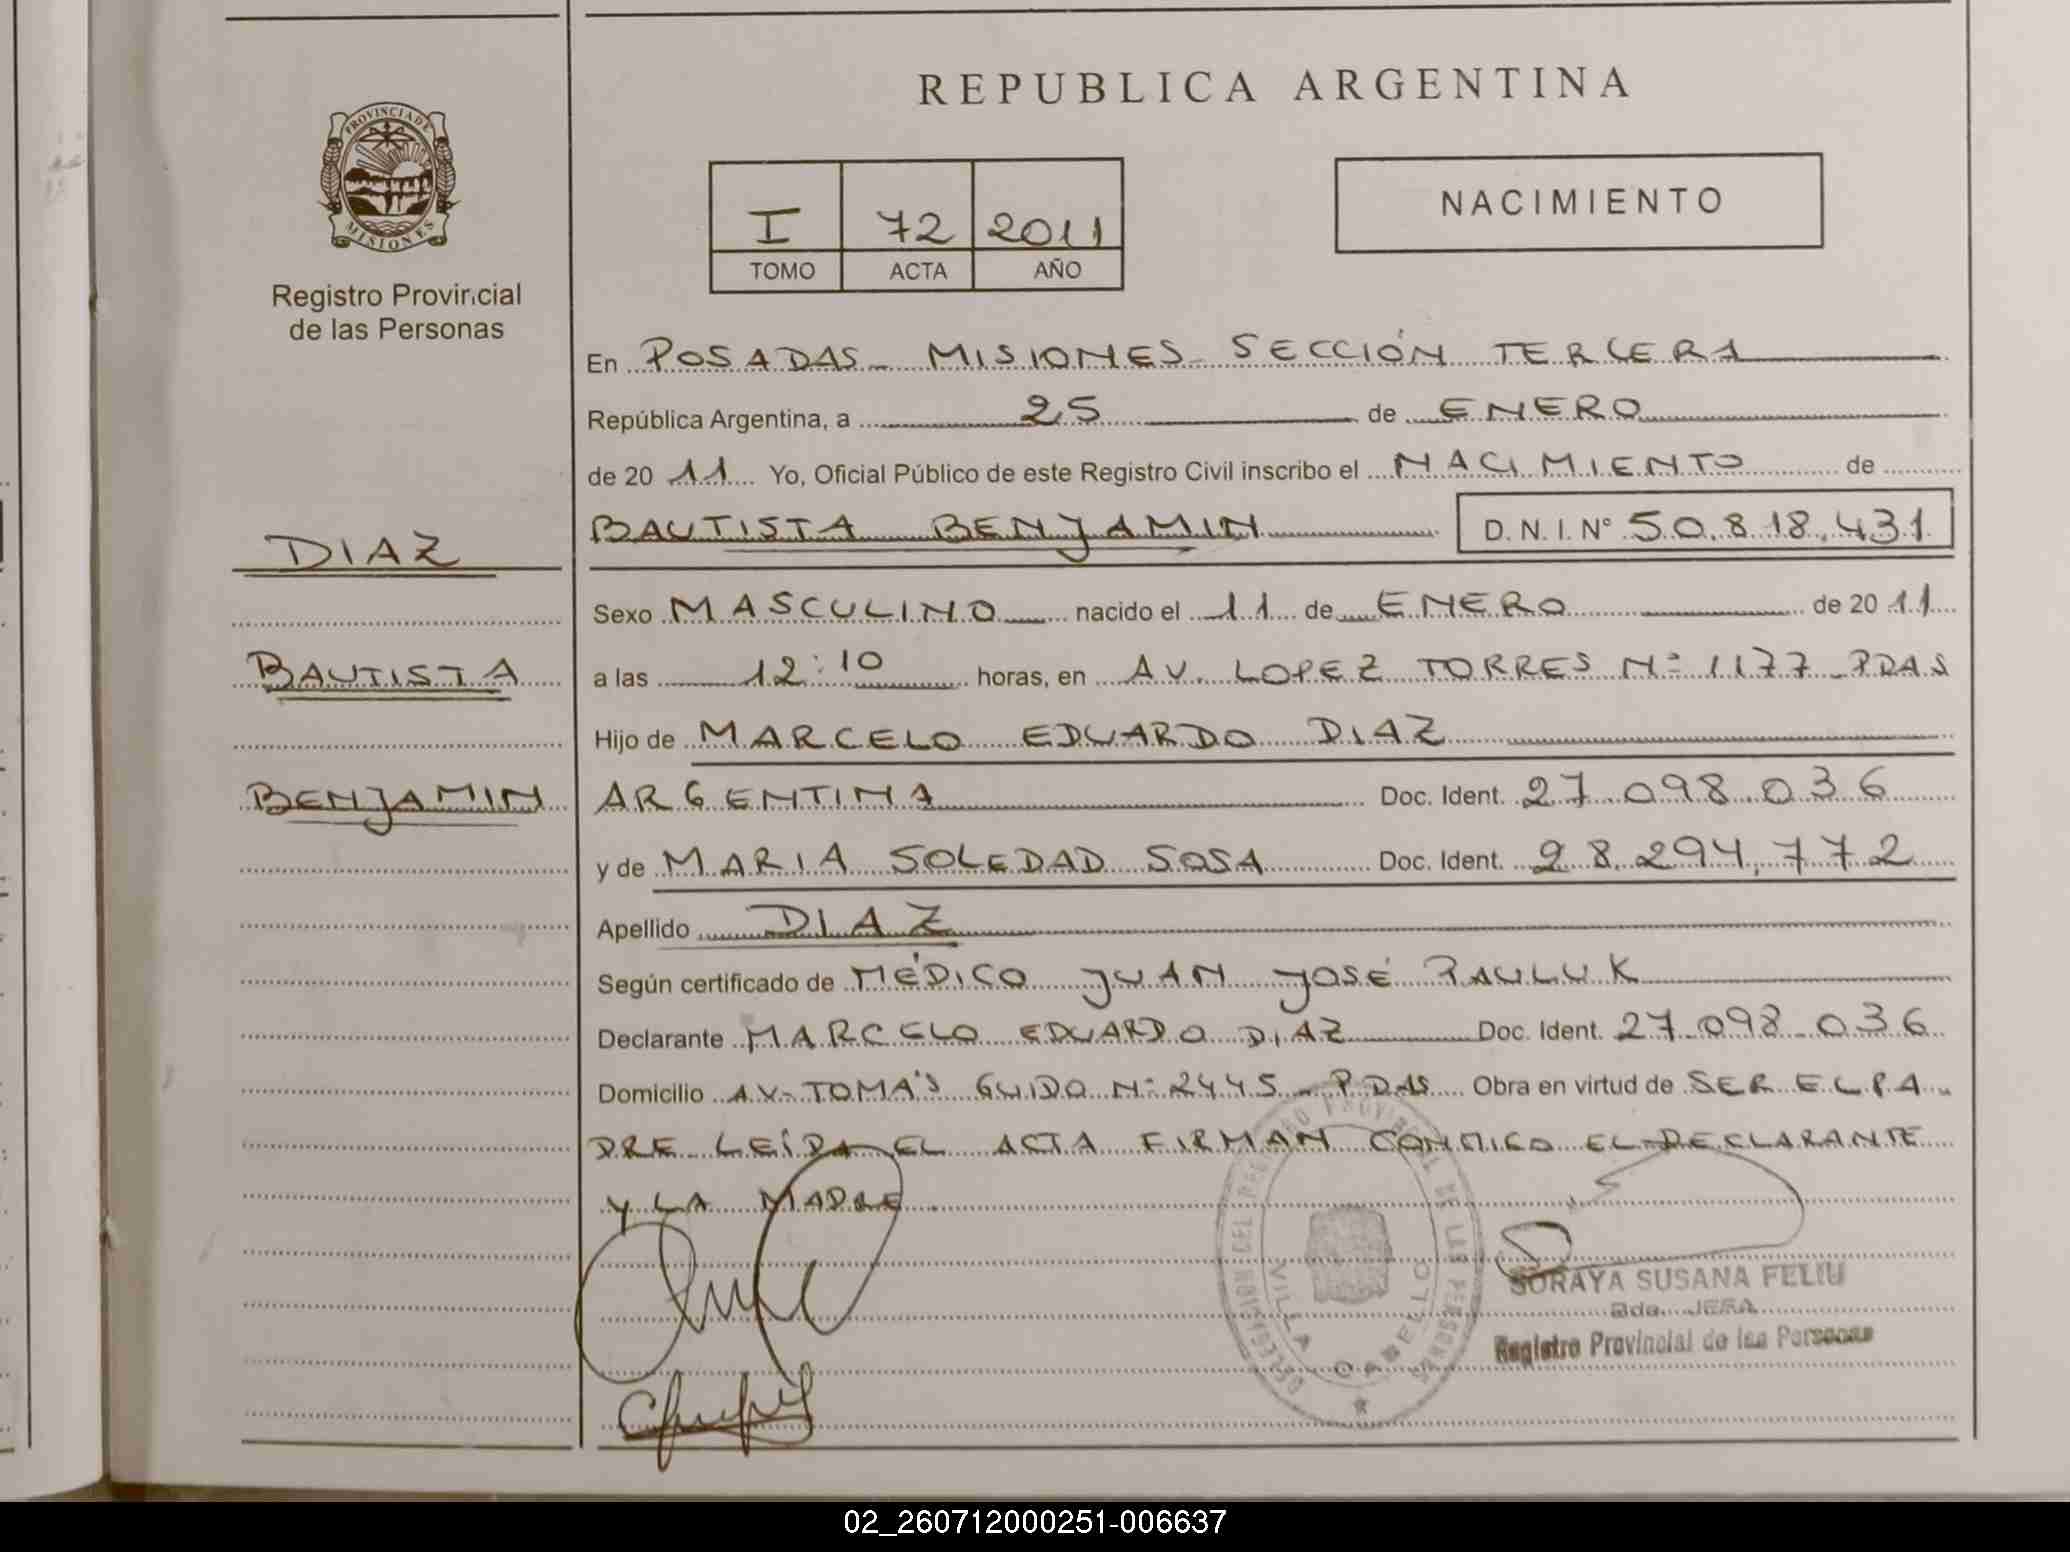 REPUBLICA ARGENTINA
PROVINCIA DE
MISIONES
Registro Provincial
de las Personas
I 72 2011
TOMO ACTA AÑO
NACIMIENTO
En POSADAS - MISIONES - SECCIÓN TERCERA
República Argentina, a 25 de ENERO
de 20 11 Yo, Oficial Público de este Registro Civil inscribo el NACIMIENTO de
BAUTISTA BENJAMIN D. N. I. Nº 50.818.431
DIAZ
BAUTISTA
BENJAMIN
Sexo MASCULINO nacido el 11 de ENERO de 20 11
a las 12:10 horas, en AV. LOPEZ TORRES Nº 1177 - PDAS
Hijo de MARCELO EDUARDO DIAZ
ARGENTINA Doc. Ident. 27.098.036
y de MARIA SOLEDAD SOSA Doc. Ident. 28.294.772
Apellido DIAZ
Según certificado de MÉDICO JUAN JOSÉ PAULUK
Declarante MARCELO EDUARDO DIAZ Doc. Ident. 27.098.036
Domicilio AV. TOMÁS GUIDO Nº 2445 - PDAS Obra en virtud de SER EL PA
DRE LEÍDA EL ACTA FIRMAN CONMIGO EL DECLARANTE
Y LA MADRE.
DELEGACION DEL REGISTRO PROVINCIAL DE LAS PERSONAS
VILLA CABELLO
SORAYA SUSANA FELIU
JEFA
Registro Provincial de las Personas
02_260712000251-006637